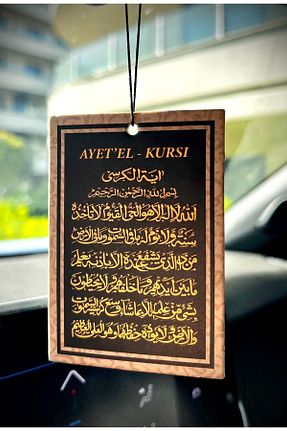 AYET'EL - KURSI
اية الكرسي
بسم الله الرحمن الرحيم
الله لا اله الا هو الحي القيوم لا تأخذه
سنة ولا نوم له ما في السموات وما في الارض
من ذا الذي يشفع عنده الا باذنه يعلم
ما بين ايديهم وما خلفهم ولا يحيطون
بشئ من علمه الا بما شاء وسع كرسيه السموات
والارض ولا يؤده حفظهما وهو العلي العظيم